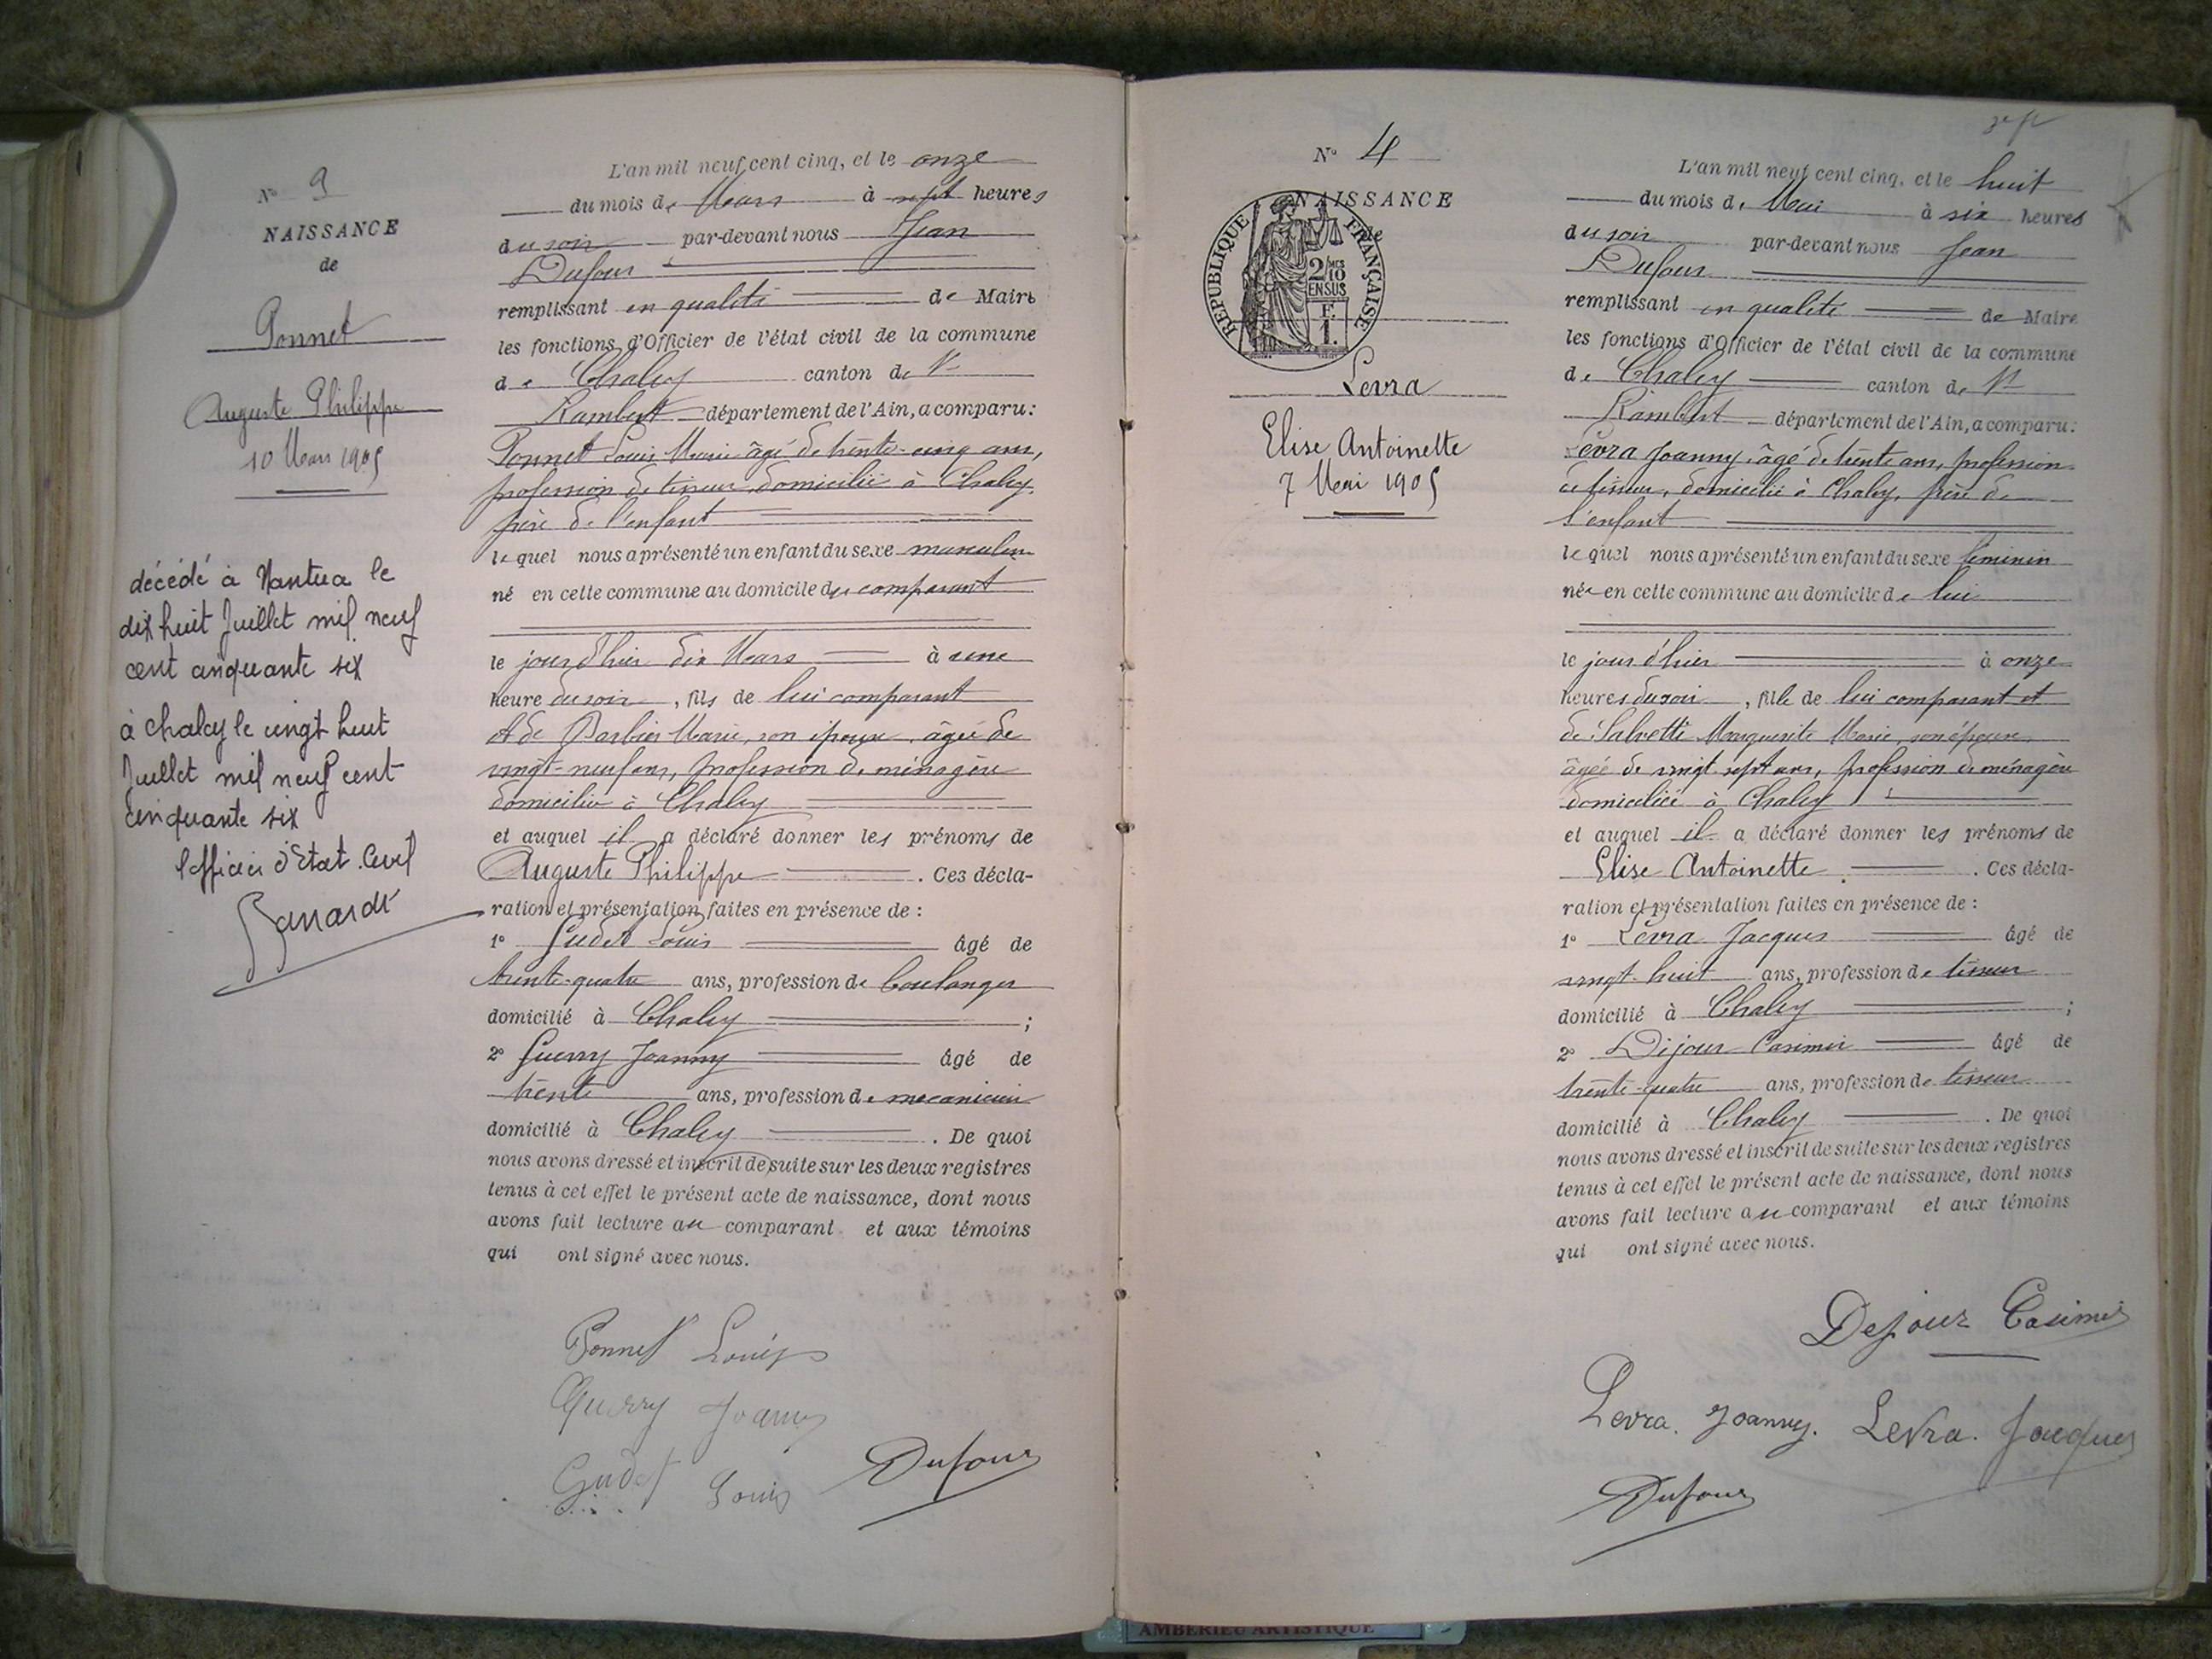 N° 3
NAISSANCE
de
Ponnet
Auguste Philippe
10 Mars 1905
décédé à Nantua le
dix huit Juillet mil neuf
cent cinquante six
à Chaley le vingt huit
Juillet mil neuf cent
cinquante six
l'officier d'Etat Civil
L'an mil neuf cent cinq, et le onze
du mois de Mars à sept heures
du soir par-devant nous Jean
Dufour
remplissant en qualité de Maire
les fonctions d'Officier de l'état civil de la commune
de Chaley canton de St
Rambert département de l'Ain, a comparu :
Ponnet Louis Marie âgé de trente-cinq ans,
profession de tisseur, domicilié à Chaley,
père de l'enfant
lequel nous a présenté un enfant du sexe masculin
né en cette commune au domicile du comparant
le jour d'hier dix Mars à une
heure du soir, fils de lui comparant
et de Barbier Marie, son épouse, âgée de
vingt-neuf ans, profession de ménagère
domiciliée à Chaley
et auquel il a déclaré donner les prénoms de
Auguste Philippe. Ces décla-
ration et présentation faites en présence de :
1° Gudet Louis âgé de
trente-quatre ans, profession de boulanger
domicilié à Chaley ;
2° Guerry Joanny âgé de
trente ans, profession de mecanicien
domicilié à Chaley. De quoi
nous avons dressé et inscrit de suite sur les deux registres
tenus à cet effet le présent acte de naissance, dont nous
avons fait lecture au comparant et aux témoins
qui ont signé avec nous.
Ponnet Louis
Guerry Joanny
Gudet Louis Dufour
N° 4
NAISSANCE
de
REPUBLIQUE FRANÇAISE
2/10 MES
EN SUS
F.
1.
Levra
Elise Antoinette
7 Mai 1905
L'an mil neuf cent cinq, et le huit
du mois de Mai à six heures
du soir par-devant nous Jean
Dufour
remplissant en qualité de Maire
les fonctions d'Officier de l'état civil de la commune
de Chaley canton de St
Rambert département de l'Ain, a comparu :
Levra Joanny, âgé de trente ans, profession
de tisseur, domicilié à Chaley, père de
l'enfant
lequel nous a présenté un enfant du sexe féminin
née en cette commune au domicile de lui
le jour d'hier à onze
heures du soir, fille de lui comparant et
de Salvetti Marguerite Marie, son épouse,
âgée de vingt-sept ans, profession de ménagère
domiciliée à Chaley
et auquel il a déclaré donner les prénoms de
Elise Antoinette. Ces décla-
ration et présentation faites en présence de :
1° Levra Jacques âgé de
vingt-huit ans, profession de tisseur
domicilié à Chaley ;
2° Dijour Casimir âgé de
trente-quatre ans, profession de tisseur
domicilié à Chaley. De quoi
nous avons dressé et inscrit de suite sur les deux registres
tenus à cet effet le présent acte de naissance, dont nous
avons fait lecture au comparant et aux témoins
qui ont signé avec nous.
Dejour Casimir
Levra. Joanny. Levra. Jacques
Dufour
AMBERIEU ARTISTIQUE